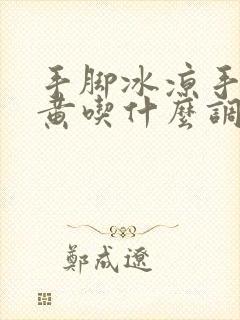 手脚冰凉手
黄喫什麼調
鄭成遼